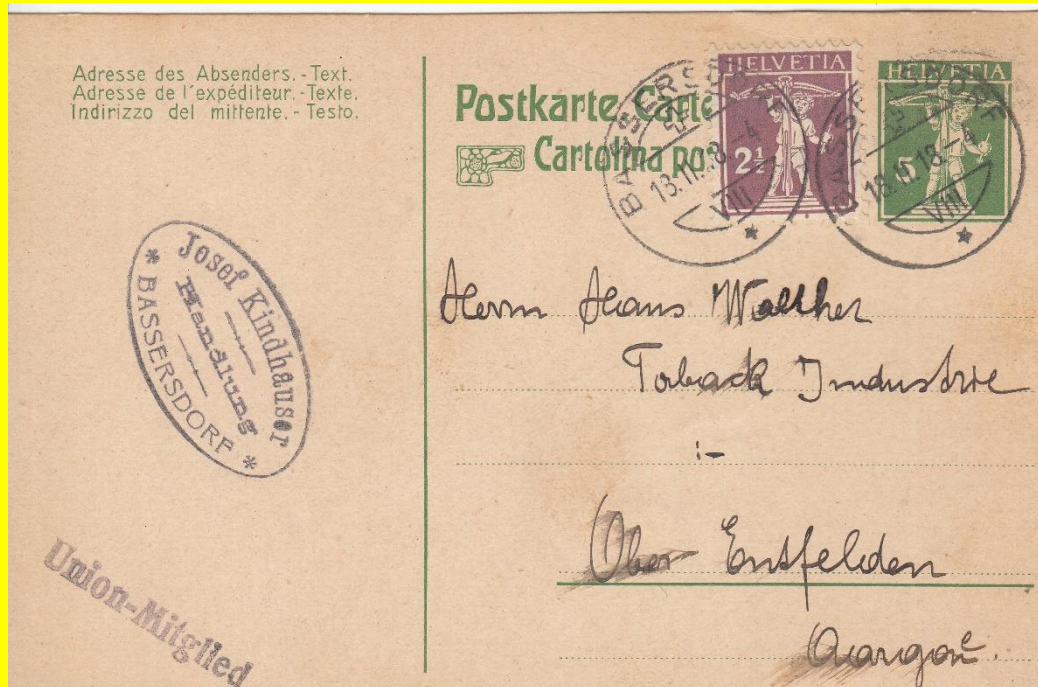 Adresse des Absenders. - Text.
Adresse de l'expéditeur. - Texte.
Indirizzo del mittente. - Testo.
Postkarte. Carte
Cartolina pos
HELVETIA
2½
HELVETIA
5
BASSERSDORF
13.II.18.-4
VIII
BASSERSDORF
18.-4
VIII
Josef Kindhauser
Handlung
* BASSERSDORF *
Union-Mitglied
Herrn Hans Walther
Taback Industrie
:-
Ober Entfelden
Aargau.